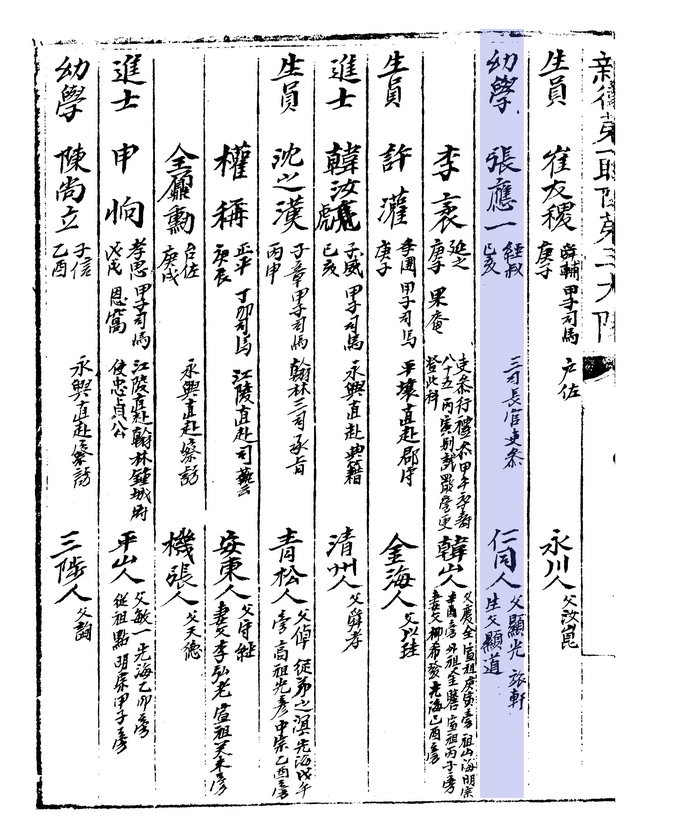 第一聯隊第三大隊
生員 崔友稷 舜輔 庚子 甲子司馬 戶佐 永川人 父汝崑
幼學 張應一 經叔 己亥 三司長官吏參 仁同人 父顯光 旅軒 生父顯道
李袤 延之 庚子 果庵 吏參行禮參甲午 八十五 丙寅別試罷榜更登此科 韓山人 父慶全 宣祖庚寅榜 祖山海明宗辛酉榜 外祖金瞻 宣祖丙子榜 妻父柳希發 光海己酉榜
生員 許灌 庚子 甲子司馬 平壤直赴郡守 金海人
進士 韓汝 虎 子威 己亥 甲子司馬 永興直赴典籍 清州人 父舜孝
生員 沈之漢 子章 丙申 甲子司馬 翰林三司承旨 青松人 父倬 從弟之溟光海戊午榜 高祖光彦中宗乙酉榜
權稱 正平 庚辰 丁卯司馬 江陵直赴司藝 安東人 父守経 妻父李弘老宣祖癸未榜
全 勳 台佐 庚戌 永興直赴察訪 機張人 父天德
進士 申恦 孝思 戊戌 甲子司馬 恩窩 江陵直赴翰林鍾城府使忠貞公 平山人 父敏一光海乙卯榜 從祖點明宗甲子榜
幼學 陳尚立 子信 乙酉 永興直赴察訪 三陟人 父詷